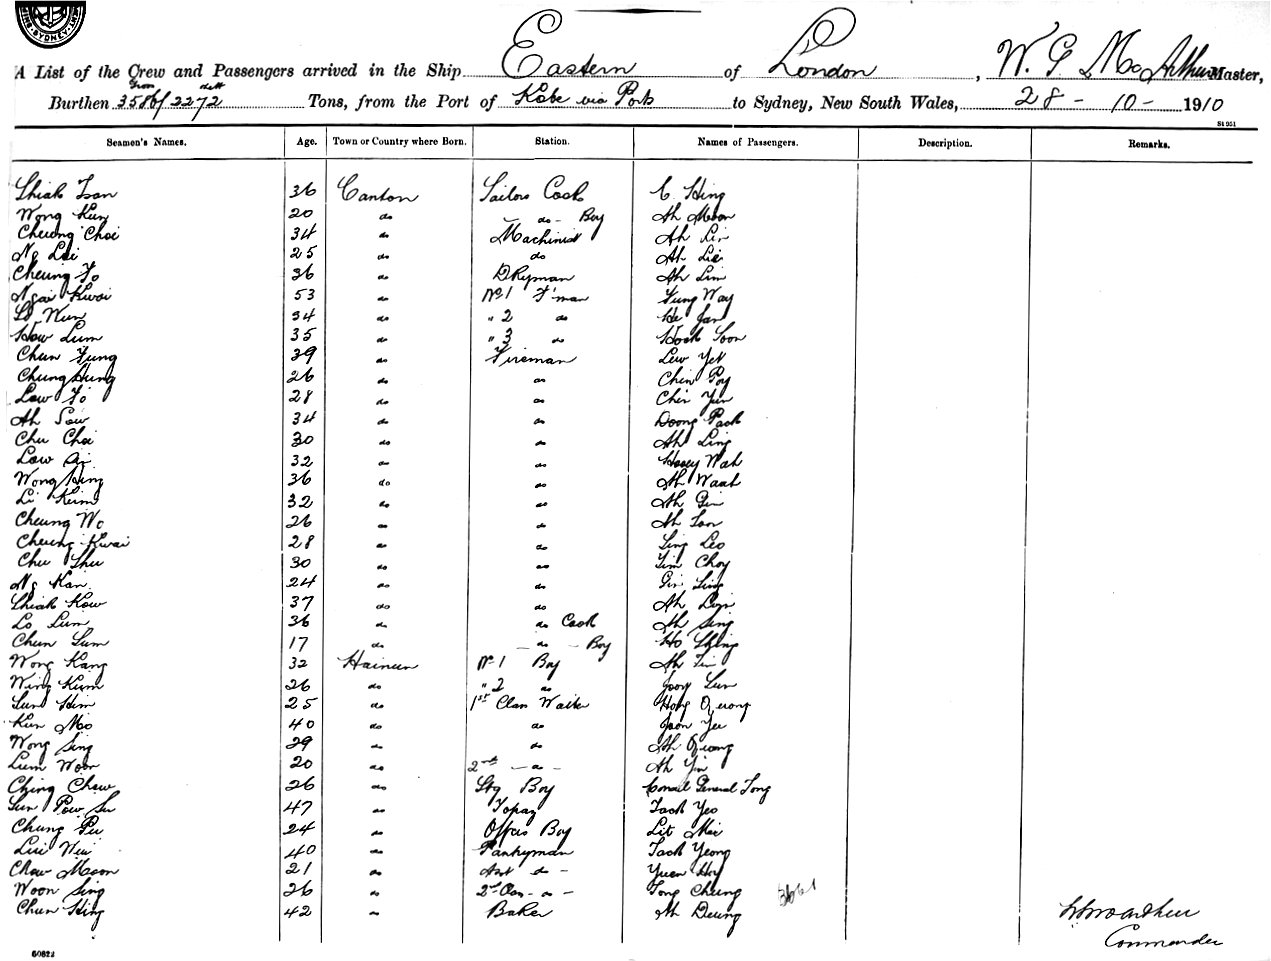 SYDNEY
A List of the Crew and Passengers arrived in the Ship Eastern of London, W. G. McArthur Master,
Gross Nett
Burthen 3586/2272 Tons, from the Port of Kobe via Ports to Sydney, New South Wales, 28 - 10 - 1910
St 951
Seamen's Names. Age. Town or Country where Born. Station. Names of Passengers. Description. Remarks.
Shiak Tsan 36 Canton Sailors Cook C. Hing
Wong Kun 20 do - do - Boy Ah Moon
Cheung Choi 34 do Machinist Ah Lin
Ng Loi 25 do do Ah Lie
Cheung Yo 36 do DKeyman Ah Lim
Ngai Kwai 53 do No 1 F'man Fung Way
Lo Mun 34 do " 2 do He Jan
How Lum 35 do " 3 do Hock Soon
Chun Fung 39 do Fireman Lew Yet
Chung Hung 26 do do Chin Poy
Low Fo 28 do do Chin Yun
Ah Sow 34 do do Doong Pack
Chu Choi 30 do do Ah Ling
Low 32 do do Hooey Wah
Wong Hing 36 do do Ah Waat
Li Keim 32 do do Ah Gin
Cheung Wo 26 do do Ah Son
Cheung Kwai 28 do do Sing Leo
Chu Shu 30 do do Yim Choy
Ng Kan 24 do do Gin Sing
Shiak Kow 37 do do Ah
Lo Lum 36 do do Cook Ah Sing
Chun Sum 17 do - do - Boy Ho Shing
Wong Kang 32 Hainun No 1 Boy Ah
Wing Kum 26 do " 2 do Lun
Sun Him 25 do 1st Class Waiter Hong Quong
Kun Mo 40 do do Joon Yee
Wong Sing 29 do do Ah Quong
Lum Woon 20 do 2nd - do - Ah Yin
Ching Chew 26 do Stg Boy Consul General Tong
Sun Pow Su 47 do Topaz Tack Yeo
Chung Pu 24 do Offrs Boy Lit Mei
Lui Wei 40 do Pantryman Tack Yeong
Chow Moon 21 do Asst do - Yuen Hoy
Woon Sing 26 do 2nd Class - do - Tong Cheung
Chun Hing 42 do Baker Ah Deung
W G McArthur
Commander
60822